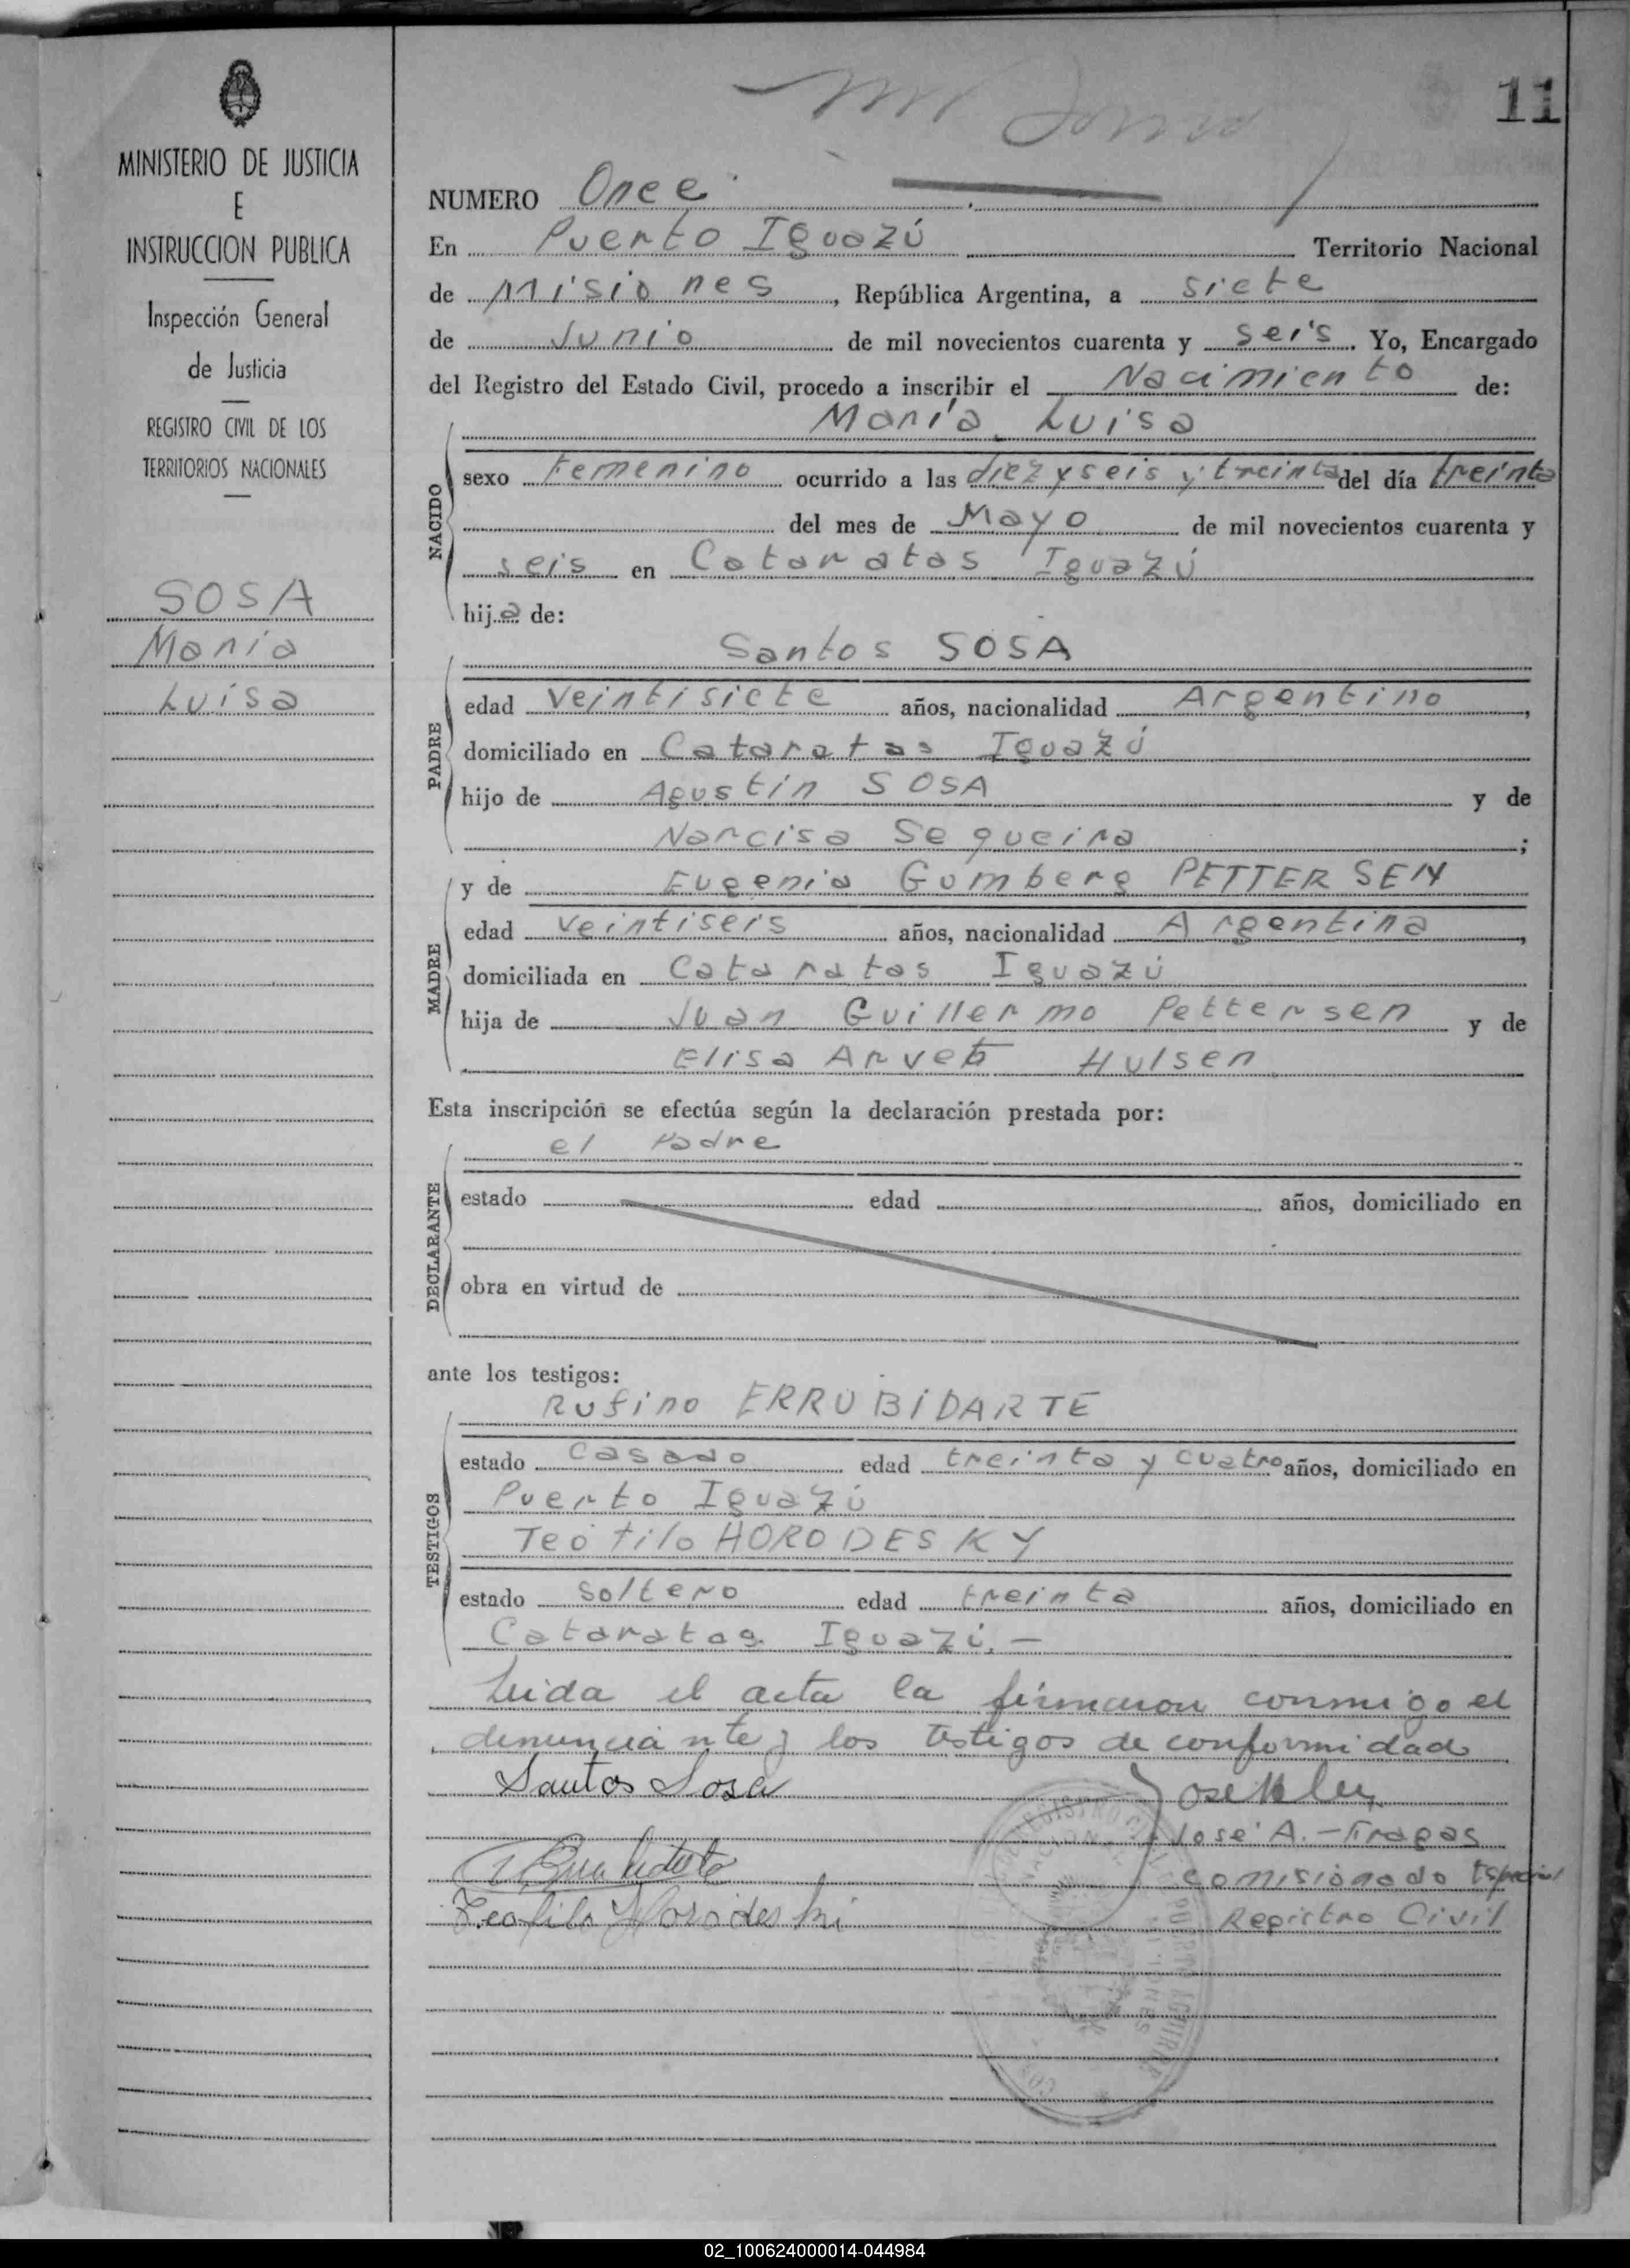 11
MINISTERIO DE JUSTICIA
E
INSTRUCCION PUBLICA
Inspección General
de Justicia
REGISTRO CIVIL DE LOS
TERRITORIOS NACIONALES
SOSA
María
Luisa
NUMERO Once
En Puerto Iguazú Territorio Nacional
de Misiones, República Argentina, a siete
de Junio de mil novecientos cuarenta y seis. Yo, Encargado
del Registro del Estado Civil, procedo a inscribir el Nacimiento de:
María Luisa
NACIDO
sexo Femenino ocurrido a las diez y seis y treinta del día treinta
del mes de Mayo de mil novecientos cuarenta y
seis en Cataratas Iguazú
hija de:
Santos SOSA
PADRE
edad veintisiete años, nacionalidad Argentino,
domiciliado en Cataratas Iguazú
hijo de Agustín SOSA y de
Narcisa Sequeira;
MADRE
y de Eugenia Gumberg PETTERSEN
edad veintiseis años, nacionalidad Argentina,
domiciliada en Cataratas Iguazú
hija de Juan Guillermo Pettersen y de
Elisa Hulsen
Esta inscripción se efectúa según la declaración prestada por:
el Padre
DECLARANTE
estado edad años, domiciliado en
obra en virtud de
ante los testigos:
TESTIGOS
Rufino ERRUBIDARTE
estado casado edad treinta y cuatro años, domiciliado en
Puerto Iguazú
Teófilo HORODESKY
estado soltero edad treinta años, domiciliado en
Cataratas Iguazú.—
Leida el acta la firmaron conmigo el
denunciante y los testigos de conformidad
Santos Sosa
José A.—Fragas
Comisionado Especial
Teofilo Horodeski
Registro Civil
02_100624000014-044984